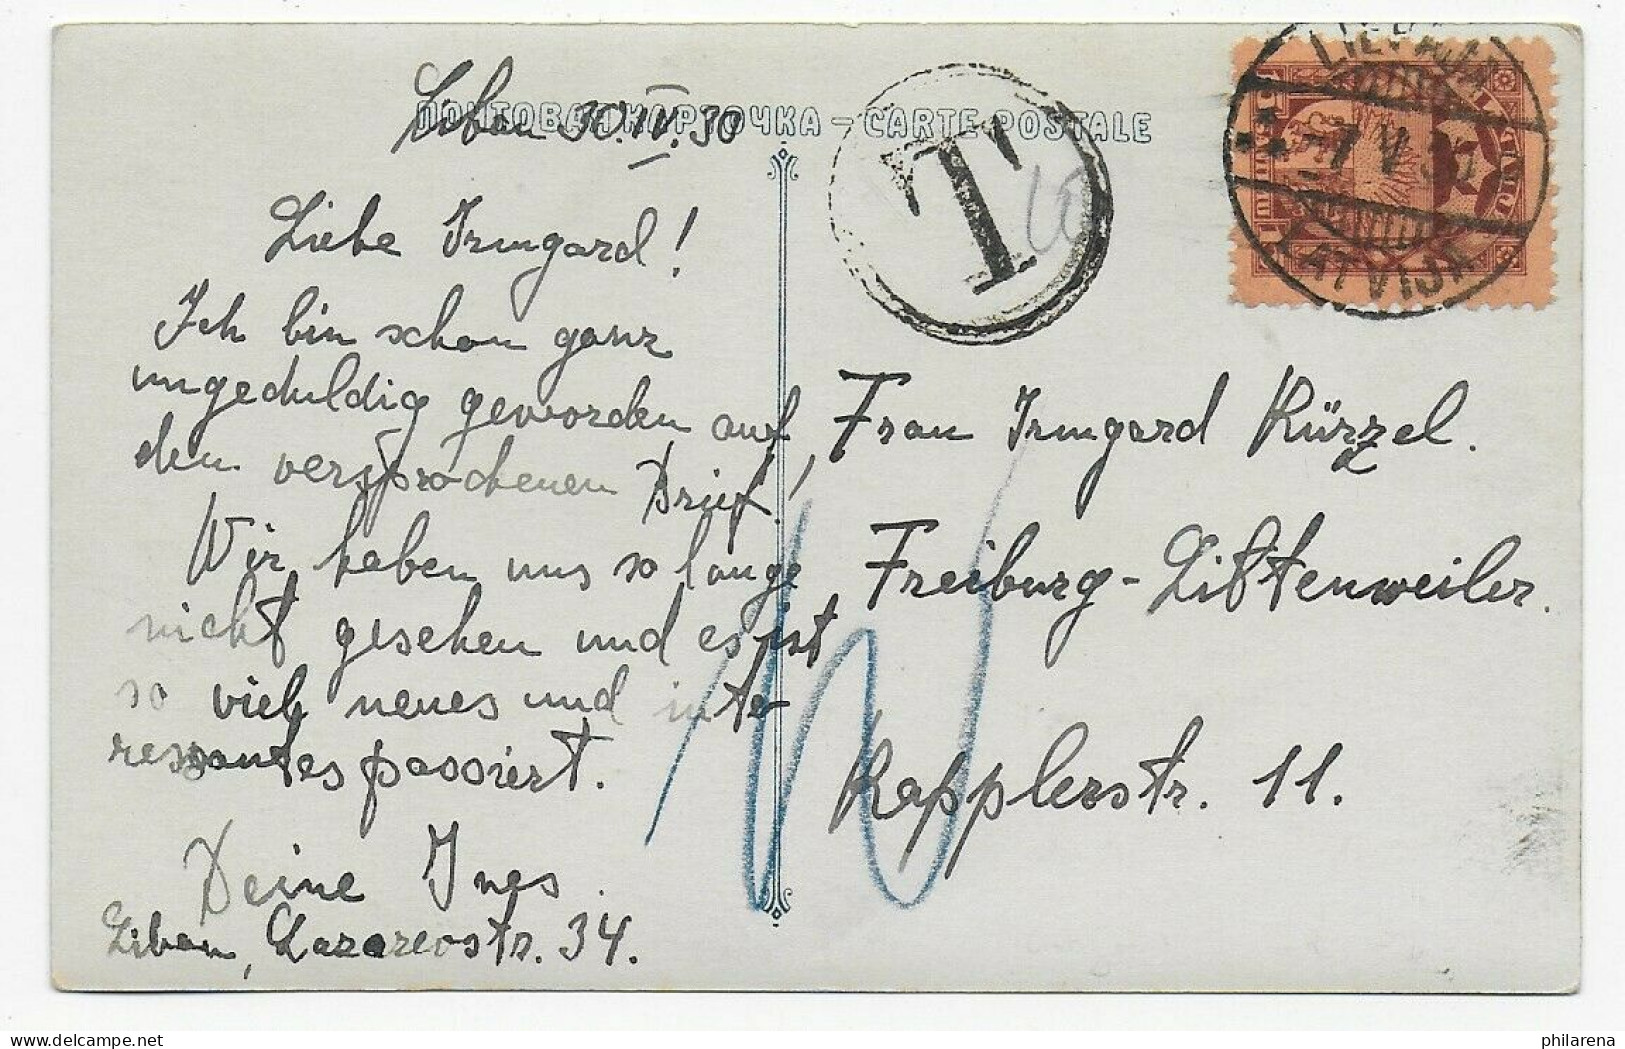 Libau 30.IV.30
ПОЧТОВАЯ КАРТОЧКА – CARTE POSTALE
T
LIEPAJA
-7 V 30
LATVIJA
Liebe Irmgard!
Ich bin schon ganz
ungeduldig geworden auf
den versprochenen Brief!
Wir haben uns so lange
nicht gesehen und es ist
so viel neues und inte-
ressantes passiert.
Deine Ines.
Libau, Lazarevostr. 34.
Frau Irmgard Kürzel.
Freiburg-Littenweiler.
Kapplerstr. 11.
10
philarena.com